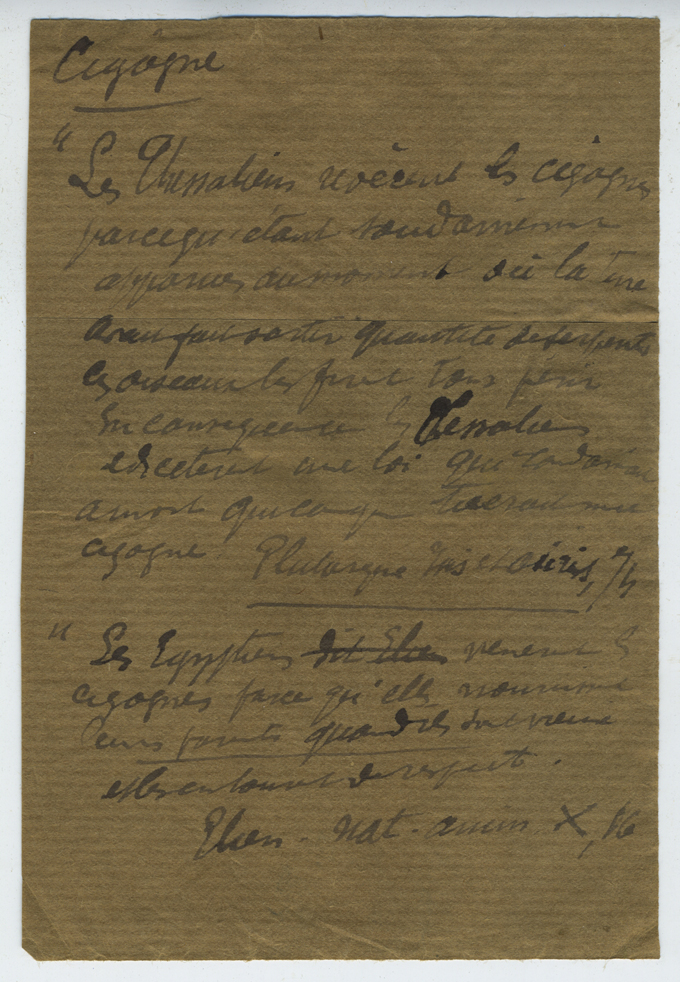 Cigogne
" Les Thessaliens révèrent les cigognes
parcequ'étant soudainement
apparues au moment où la Terre
avait fait sortir quantité de serpents
ces oiseaux les firent tous périr
En conséquence les Thessaliens
édictèrent une loi qui condamnait
a mort quiconque tuerait une
cigogne Plutarque Isis et Osiris,
" Les Egyptiens dit Elien vénèrent les
cigognes parce qu'elles nourrissent
leurs parents quand ils sont vieux
et les entourent de respect.
Elien. Nat. anim. X, 16